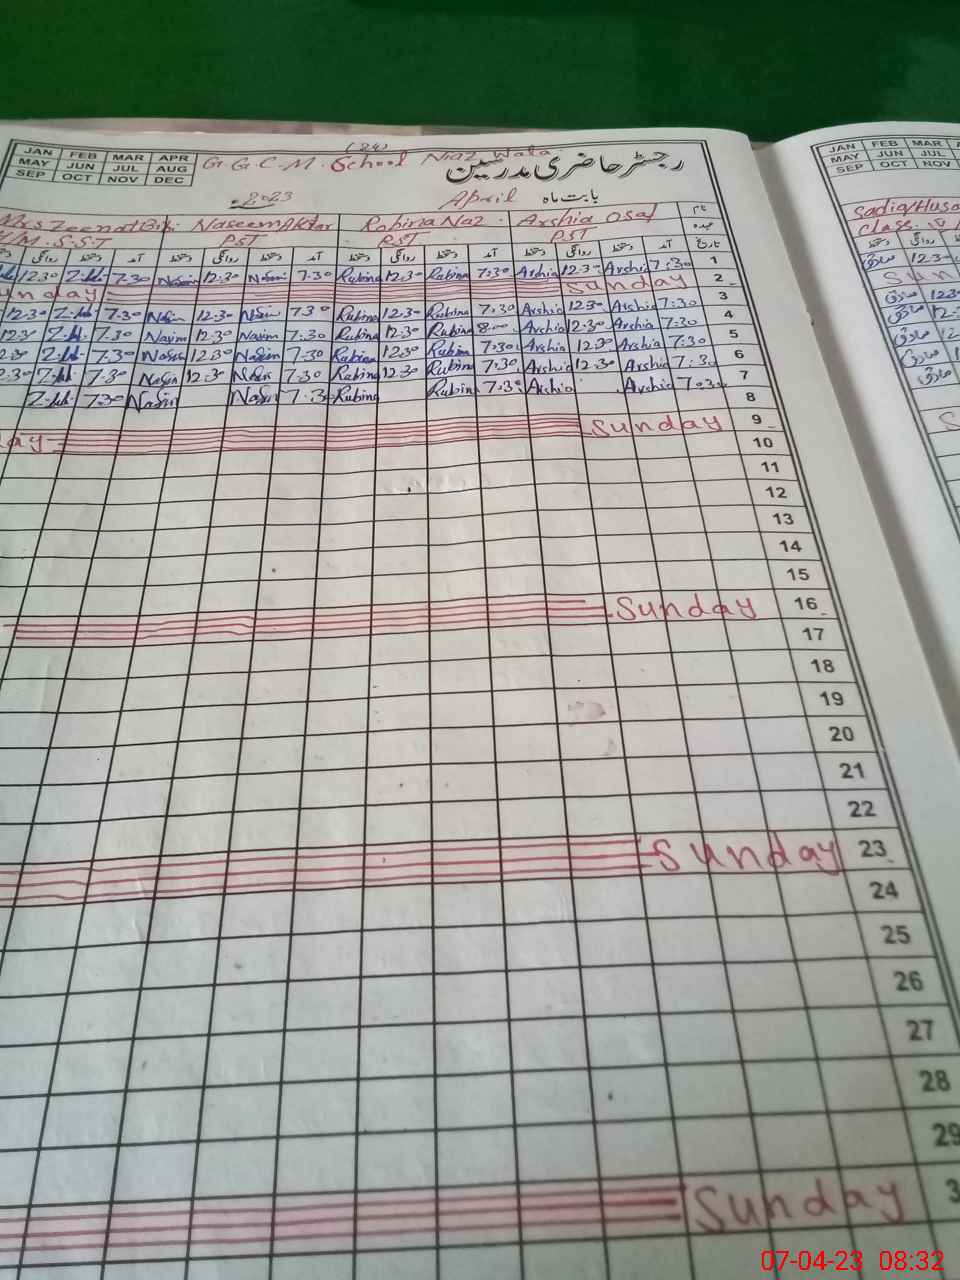 JAN FEB MAR APR
MAY JUN JUL AUG
SEP OCT NOV DEC
(24)
G.G.C.M. School Niaz Wala
رجسٹر حاضری مدرسین
2023
April بابت ماہ
Mrs Zeenat Bibi Naseem Akhtar Robina Naz Arshia Osaf نام
H/M. S.S.T PST PST PST عہدہ
روانگی دستخط آمد دستخط روانگی دستخط آمد دستخط روانگی دستخط آمد دستخط روانگی دستخط آمد تاریخ
12.30 7.30 Nasim 12.30 Nasim 7.30 Rubina 12.30 Rubina 7:30 Arshia 12.30 Arshia 7:30 1
Sunday Sunday 2
12.30 7.30 Nasim 12.30 Nasim 7.30 Rubina 12.30 Rubina 7.30 Arshia 12.30 Arshia 7:30 3
12.30 7.30 Nasim 12.30 Nasim 7.30 Rubina 12.30 Rubina 8:00 Arshia 12.30 Arshia 7:30 4
12.30 7.30 Nasim 12.30 Nasim 7.30 Rubina 12.30 Rubina 7:30 Arshia 12.30 Arshia 7:30 5
12.30 7.30 Nasim 12.30 Nasim 7.30 Rubina 12.30 Rubina 7.30 Arshia 12.30 Arshia 7:30 6
7.30 Nasim Nasim 7.30 Rubina Rubina 7.30 Arshia Arshia 7:30 7
8
Sunday 9
10
11
12
13
14
15
Sunday 16
17
18
19
20
21
22
Sunday 23
24
25
26
27
28
29
Sunday 3
JAN FEB MAR
MAY JUN JUL
SEP OCT NOV
Sadiq Husa
Class. IV
دستخط روانگی دستخط
صادق 12.30
Sun
صادق 12.30
صادق 12.
صادق
صادق
صادق
S
07-04-23 08:32